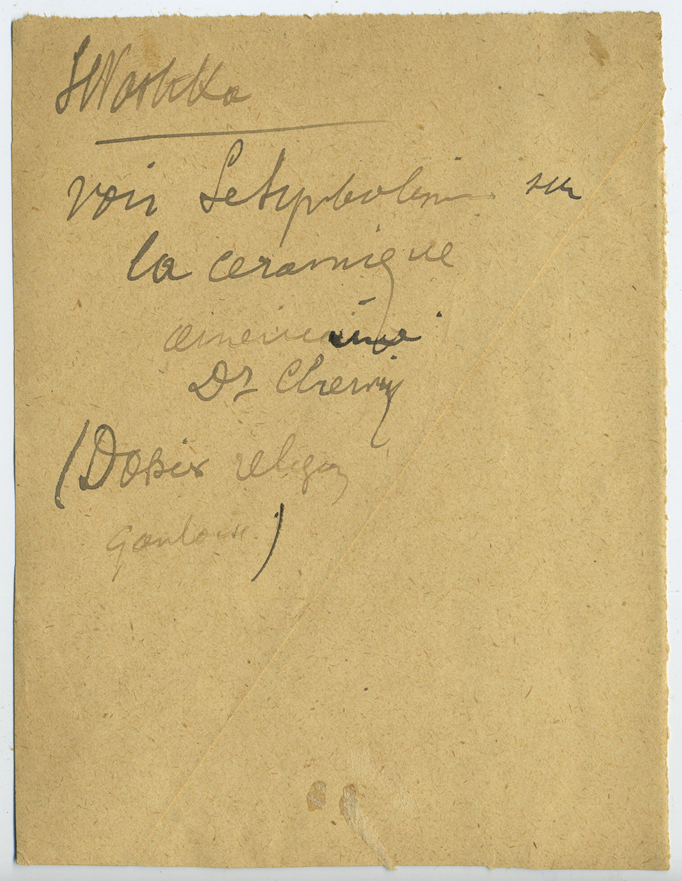 Swastika
voir Le Symbolisme sur
la ceramique
américaine
Dr Chervin
(Dossier religion
gauloise)